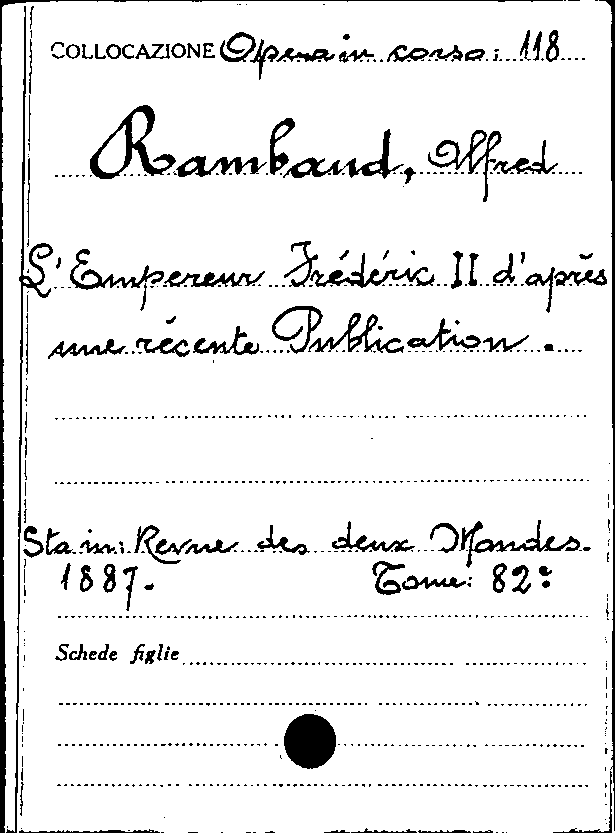 COLLOCAZIONE Opera in corso: 118
Rambaud, Alfred
L'Empereur Frédéric II d'après
une récente Publication.
Sta in: Revue des deux Mondes.
1887. Tome: 82º
Schede figlie